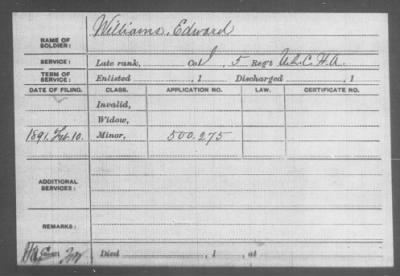 Williams, Edward
NAME OF SOLDIER:
SERVICE: Late rank, Co. I, 5 Reg't U.S.C.H.A.
TERM OF SERVICE: Enlisted , 1 Discharged , 1
DATE OF FILING. CLASS. APPLICATION NO. LAW. CERTIFICATE NO.
Invalid,
Widow,
1891. Feb. 10. Minor, 500.275
ADDITIONAL SERVICES:
REMARKS:
Died , 1 , at